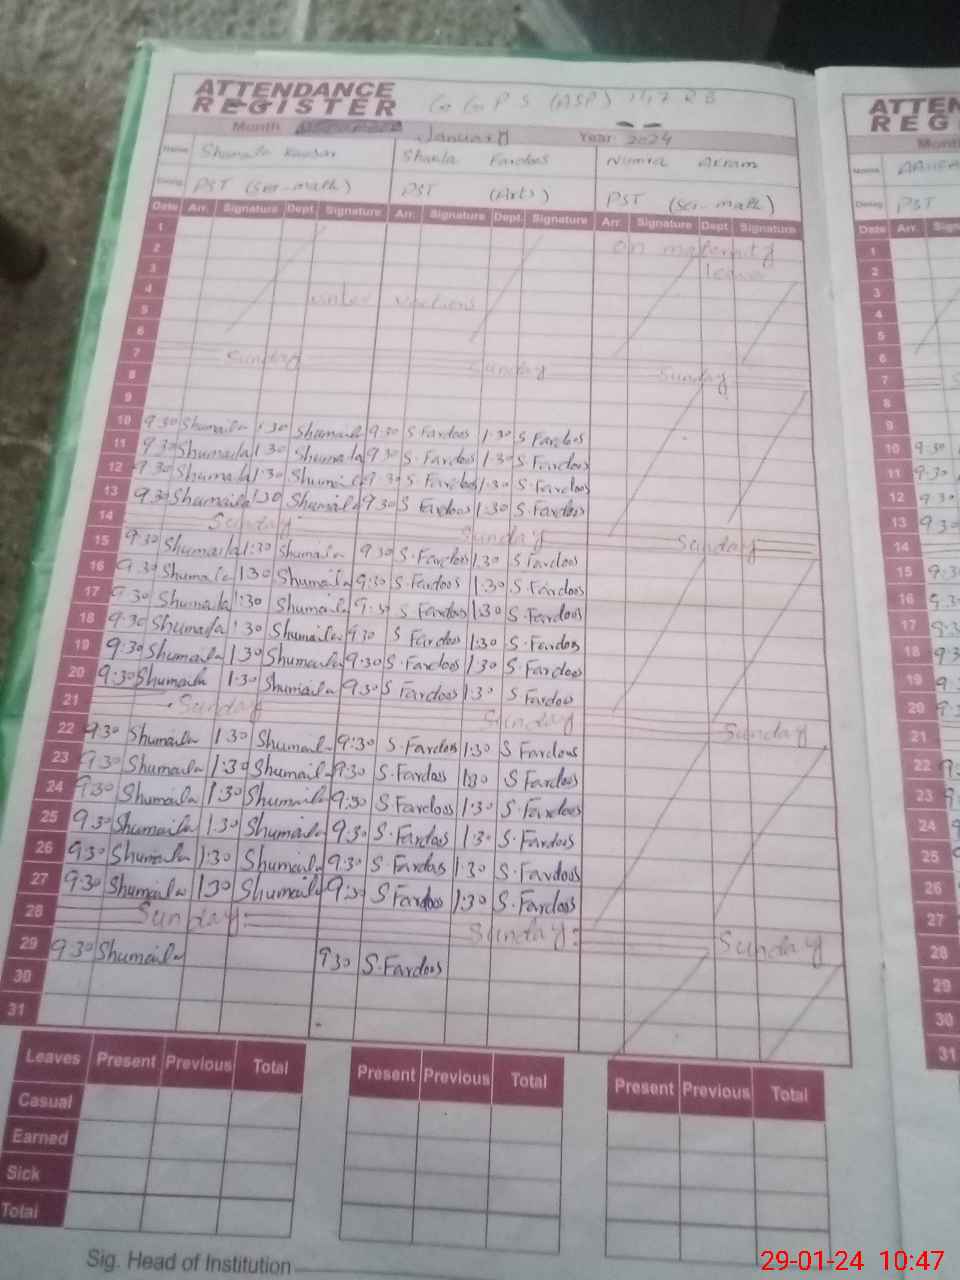 ATTENDANCE REGISTER
G G P S (ASP) 147 RB
Month January Year 2024
Name Shumaila Kausar Shakla Fardoos Numra Akram
Desig PST (Sci-math) PST (Arts) PST (Sci-math)
Date Arr. Signature Dept. Signature Arr. Signature Dept. Signature Arr. Signature Dept. Signature
1
2 on maternity
3 leave
4
5 winter
6
7 Sunday Sunday Sunday
8
9
10 9:30 Shumaila 1:30 Shumaila 9:30 S Fardoos 1:30 S Fardoos
11 9:30 Shumaila 1:30 Shumaila 9:30 S. Fardoos 1:30 S. Fardoos
12 9:30 Shumaila 1:30 Shumaila 9:30 S. Fardoos 1:30 S. Fardoos
13 9:30 Shumaila 1:30 Shumaila 9:30 S Fardoos 1:30 S. Fardoos
14 Sunday Sunday Sunday
15 9:30 Shumaila 1:30 Shumaila 9:30 S. Fardoos 1:30 S Fardoos
16 9:30 Shumaila 1:30 Shumaila 9:30 S Fardoos 1:30 S. Fardoos
17 9:30 Shumaila 1:30 Shumaila 9:30 S Fardoos 1:30 S. Fardoos
18 9:30 Shumaila 1:30 Shumaila 9:30 S Fardoos 1:30 S. Fardoos
19 9:30 Shumaila 1:30 Shumaila 9:30 S. Fardoos 1:30 S Fardoos
20 9:30 Shumaila 1:30 Shumaila 9:30 S Fardoos 1:30 S Fardoos
21 Sunday Sunday Sunday
22 9:30 Shumaila 1:30 Shumaila 9:30 S. Fardoos 1:30 S Fardous
23 9:30 Shumaila 1:30 Shumaila 9:30 S. Fardoos 1:30 S Fardoos
24 9:30 Shumaila 1:30 Shumaila 9:30 S. Fardoos 1:30 S. Fardoos
25 9:30 Shumaila 1:30 Shumaila 9:30 S. Fardoos 1:30 S. Fardoos
26 9:30 Shumaila 1:30 Shumaila 9:30 S. Fardoos 1:30 S. Fardoos
27 9:30 Shumaila 1:30 Shumaila 9:30 S Fardoos 1:30 S. Fardoos
28 Sunday Sunday Sunday
29 9:30 Shumaila 9:30 S. Fardoos
30
31
Leaves Present Previous Total Present Previous Total Present Previous Total
Casual
Earned
Sick
Total
Sig. Head of Institution
ATTEN
REG
Mont
Name
Desig PST
Date Arr. Sign
1
2
3
4
5
6
7
8
9
10 9:30
11 9:30
12 9:30
13 9:30
14
15 9:30
16 9:30
17 9:30
18 9:30
19 9
20 9
21
22 9
23
24
25
26
27
28
29
30
31
29-01-24 10:47